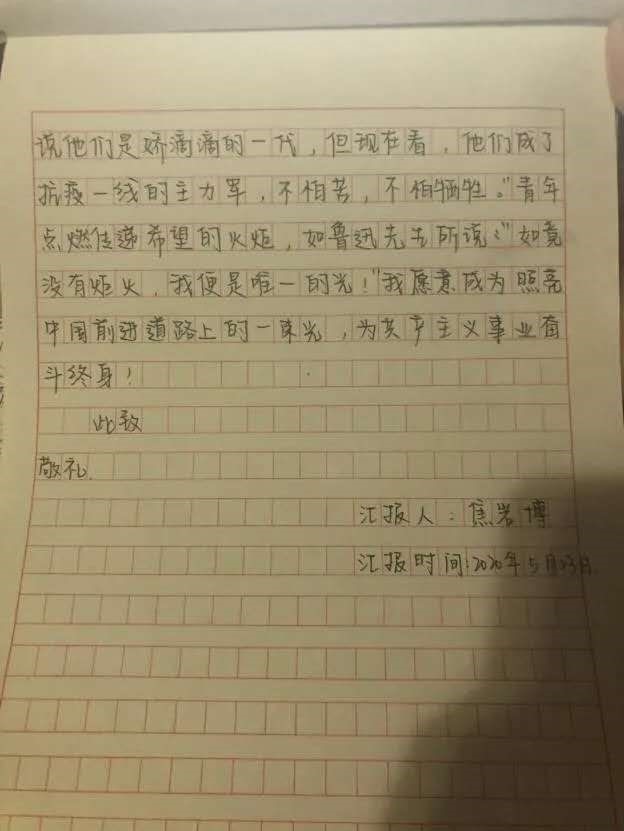 说他们是娇滴滴的一代，但现在看，他们成了
抗疫一线的主力军，不怕苦，不怕牺牲。"青年
点燃传递希望的火炬，如鲁迅先生所说："如竟
没有炬火，我便是唯一的光！"我愿意成为照亮
中国前进道路上的一束光，为共产主义事业奋
斗终身！
此致
敬礼
汇报人：焦岩博
汇报时间:2020年5月23日